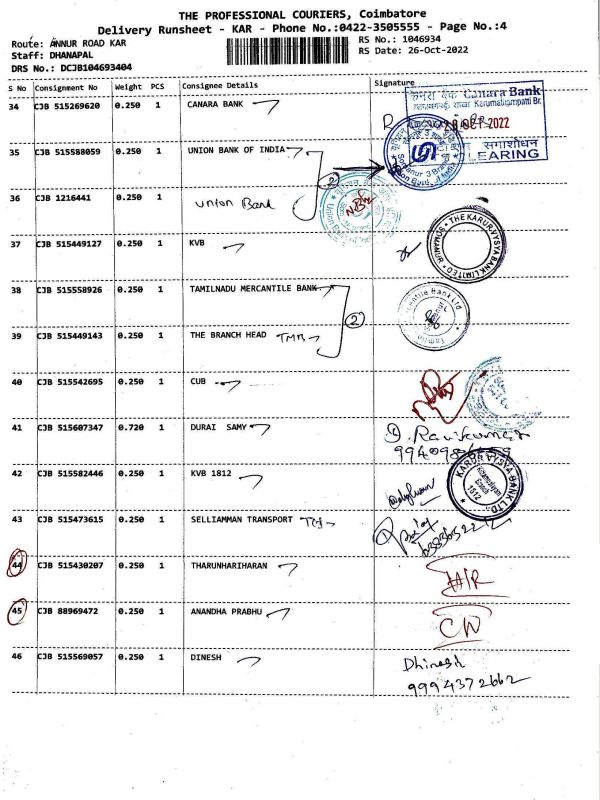 THE PROFESSIONAL COURIERS, Coimbatore
Delivery Runsheet - KAR - Phone No.:0422-3505555 - Page No.:4
Route: ANNUR ROAD KAR
RS No.: 1046934
Staff: DHANAPAL
RS Date: 26-Oct-2022
DRS No.: DCJB104693404
S No Consignment No Weight PCS Consignee Details Signature
34 CJB 515269620 0.250 1 CANARA BANK
केनरा बैंक Canara Bank
Karumathampatti Br.
OCT 2022
समाशोधन
CLEARING
35 CJB 515588059 0.250 1 UNION BANK OF INDIA
2
36 CJB 1216441 0.250 1 Union Bank
37 CJB 515449127 0.250 1 KVB
THE KARUR VYSYA BANK LIMITED SOMANUR
38 CJB 515558926 0.250 1 TAMILNADU MERCANTILE BANK
2
39 CJB 515449143 0.250 1 THE BRANCH HEAD TMB
40 CJB 515542695 0.250 1 CUB
41 CJB 515607347 0.720 1 DURAI SAMY
Ravikumar
42 CJB 515582446 0.250 1 KVB 1812
KARUR VYSYA BANK LTD.
1812
43 CJB 515473615 0.250 1 SELLIAMMAN TRANSPORT
44 CJB 515430207 0.250 1 THARUNHARIHARAN
H/R
45 CJB 88969472 0.250 1 ANANDHA PRABHU
46 CJB 515569057 0.250 1 DINESH
Dhinesh
9994372662